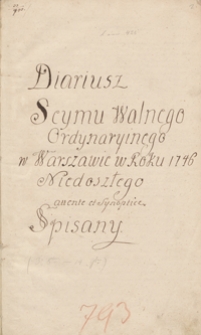 Diariusz
Seymu Walnego
Ordynaryinego
w Warszawie w Roku 1746
Niedoszłego
et
Spisany
793